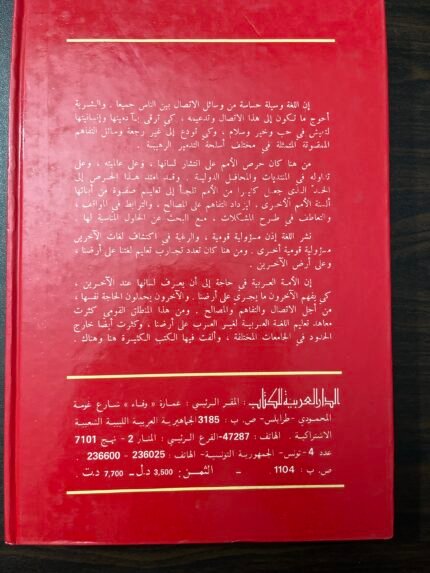 إن اللغة وسيلة حساسة من وسائل الاتصال بين الناس جميعا . والبشرية
أحوج ما تكون إلى هذا الاتصال وتدعيمه ، كي ترقى بآدميتها وإنسانيتها
لتعيش في حب وخير وسلام ، وكي تودع إلى غير رجعة وسائل التفاهم
الممقوتة المتمثلة في مختلف أسلحة التدمير الرهيبة .
من هنا كان حرص الأمم على انتشار لسانها ، وعلى عالميته ، وعلى
تداوله في المنتديات والمحافل الدولية . وقد امتد هذا الحرص إلى
الحد الذي جعل كثيرا من الأمم تلجأ إلى تعليم صفوة من أبنائها
ألسنة الأمم الأخرى ، ليزداد التفاهم على المصالح ، والترابط في المواقف ،
والتعاطف في طرح المشكلات ، مع البحث عن الحلول المناسبة لها .
نشر اللغة إذن مسؤولية قومية ، والرغبة في اكتشاف لغات الآخرين
مسؤولية قومية أخرى . ومن هنا كان تعدد تجارب تعليم لغتنا على أرضنا ،
وعلى أرض الآخرين .
إن الأمة العربية في حاجة إلى أن يعرف لسانها عند الآخرين ،
كي يفهم الآخرون ما يجري على أرضنا . والآخرون يحملون الحاجة نفسها ،
من أجل الاتصال والتفاهم والمصالح . ومن هذا المنطلق القومي كثرت
معاهد تعليم اللغة العربية لغير العرب على أرضنا ، وكثرت أيضا خارج
الحدود في الجامعات المختلفة ، وألفت فيها الكتب الكثيرة هنا وهناك .
الدار العربية للكتاب : المقر الرئيسي : عمارة « وفاء » شارع غومة
المحمودي - طرابلس - ص . ب : 3185 الجماهيرية العربية الليبية الشعبية
الاشتراكية . الهاتف : 47287 - الفرع الرئيسي : المنار 2 - نهج 7101
عدد 4 - تونس - الجمهورية التونسية - الهاتف : 236025 - 236600
ص . ب : 1104 . - الثمن : 3,500 د.ل - 7,700 د.ت .